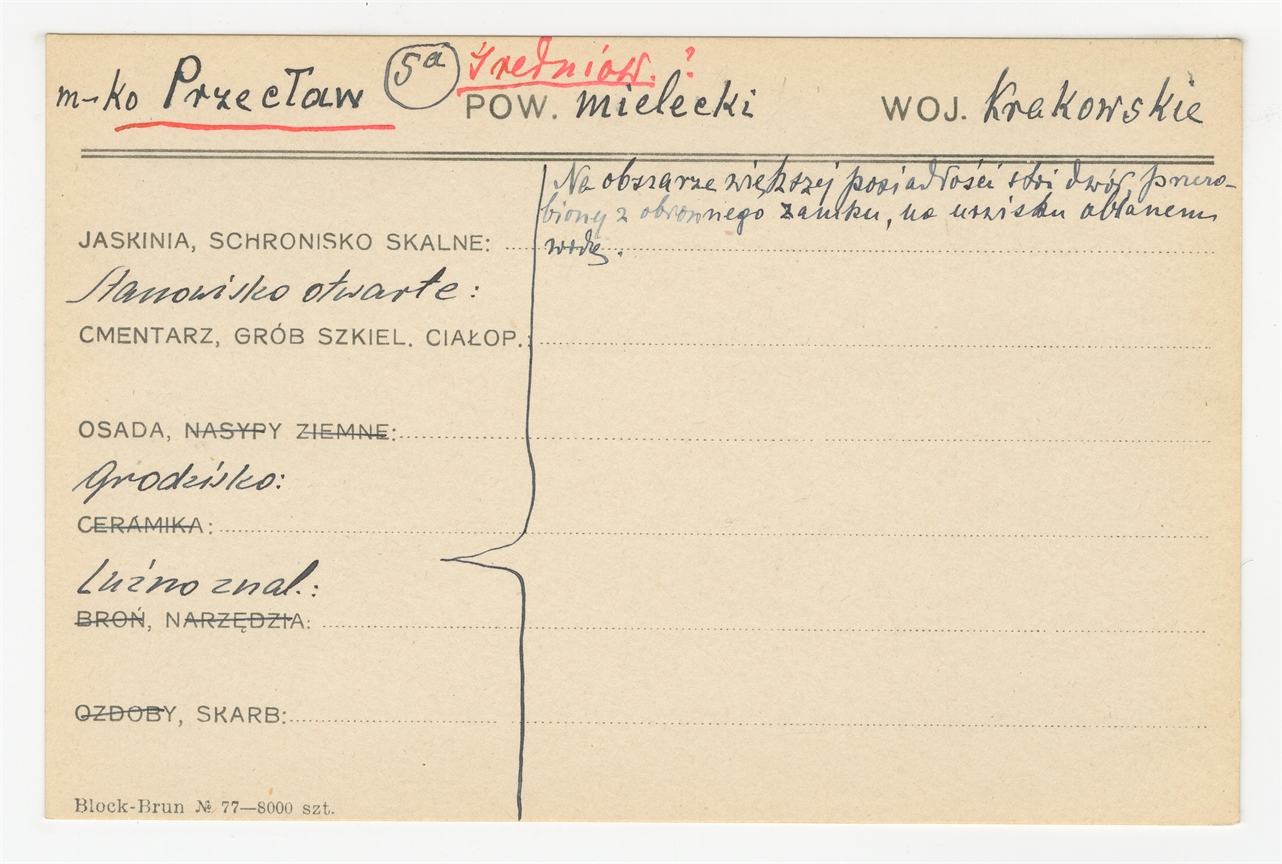 m-ko Przecław 5a Średniow. ?
POW. mielecki WOJ. Krakowskie
Na obszarze większej posiadłości stoi dwór, przero-
biony z obronnego zamku, na urwisku oblanem
wodą.
JASKINIA, SCHRONISKO SKALNE:
Stanowisko otwarte:
CMENTARZ, GRÓB SZKIEL. CIAŁOP.:
OSADA, NASYPY ZIEMNE:
Grodzisko:
CERAMIKA:
Luźno znal.:
BROŃ, NARZĘDZIA:
OZDOBY, SKARB:
Block-Brun № 77—8000 szt.